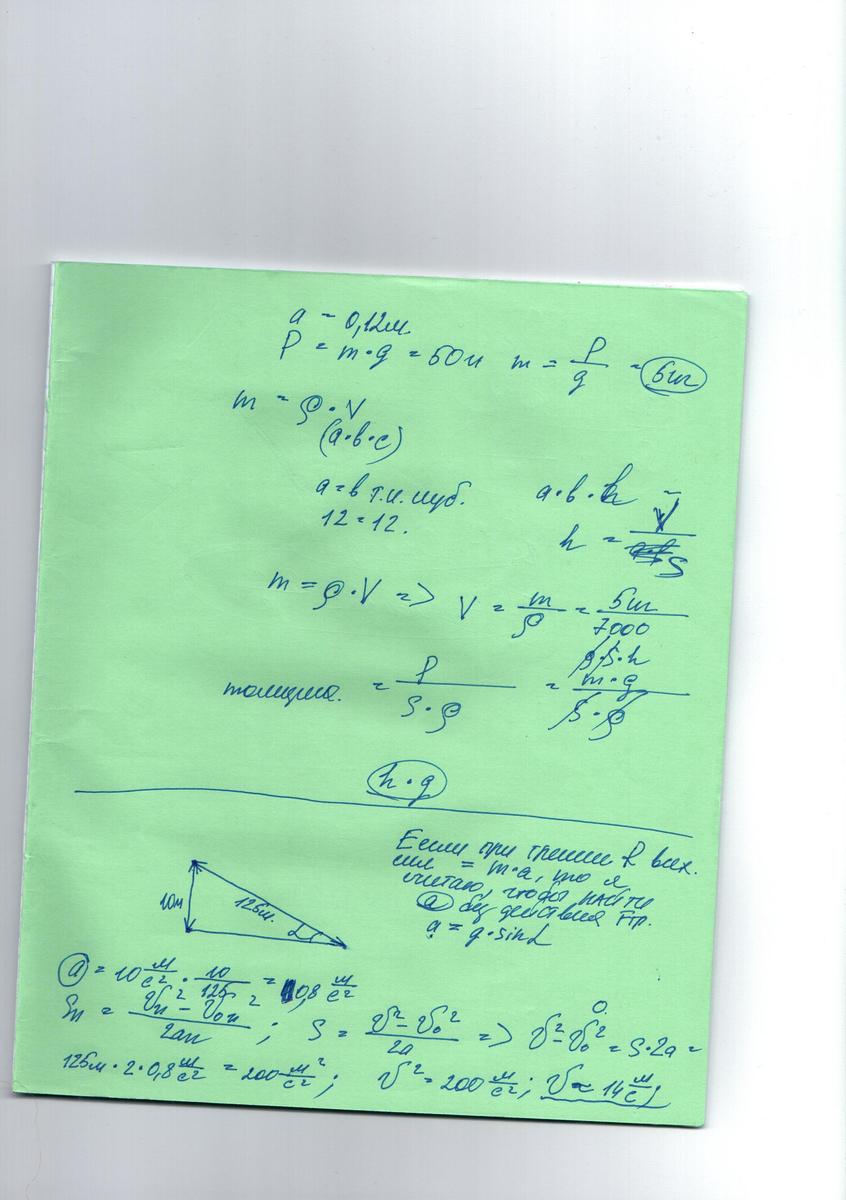 a = 0,12м.
P = m·g = 50н m = P/g = 5кг
m = ρ·V
(a·b·c)
a=b т.к. куб. a·b·h =
12=12. h = V/S
m = ρ·V => V = m/ρ = 5кг/7000
ρ·S·h
толщина. = P/(S·ρ) = m·g/(S·ρ)
h·g
Если при трении R всех.
сил = m·a, то я
считаю, чтобы найти
10м 125м. α a без действия Fтр.
a = g·sinα
a = 10 м/с² · 10/125 = 0,8 м/с²
Sн = (Vн² - V0н²)/2aн ; S = (V² - V0²)/2a => V² - V0² = S·2a =
0
125м·2·0,8 м/с² = 200 м²/с² ; V² = 200 м/с² ; V ≈ 14 м/с